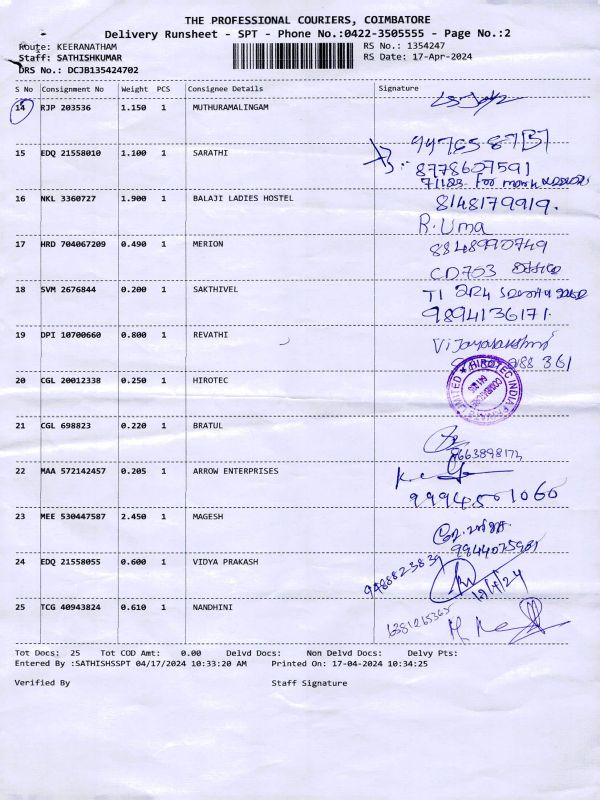 THE PROFESSIONAL COURIERS, COIMBATORE
Delivery Runsheet - SPT - Phone No.:0422-3505555 - Page No.:2
Route: KEERANATHAM RS No.: 1354247
Staff: SATHISHKUMAR RS Date: 17-Apr-2024
DRS No.: DCJB135424702
S No Consignment No Weight PCS Consignee Details Signature
14 RJP 203536 1.150 1 MUTHURAMALINGAM
15 EDQ 21558010 1.100 1 SARATHI
8778607591
16 NKL 3360727 1.900 1 BALAJI LADIES HOSTEL 8148179919.
R. Uma
17 HRD 704067209 0.490 1 MERION
CD703 office
18 SVM 2676844 0.200 1 SAKTHIVEL
9894136171.
19 DPI 10700660 0.800 1 REVATHI
20 CGL 20012338 0.250 1 HIROTEC
HIROTEC INDIA
21 CGL 698823 0.220 1 BRATUL
22 MAA 572142457 0.205 1 ARROW ENTERPRISES
9994501060
23 MEE 530447587 2.450 1 MAGESH
24 EDQ 21558055 0.600 1 VIDYA PRAKASH
25 TCG 40943824 0.610 1 NANDHINI
Tot Docs: 25 Tot COD Amt: 0.00 Delvd Docs: Non Delvd Docs: Delvy Pts:
Entered By :SATHISHSSPT 04/17/2024 10:33:20 AM Printed On: 17-04-2024 10:34:25
Verified By Staff Signature